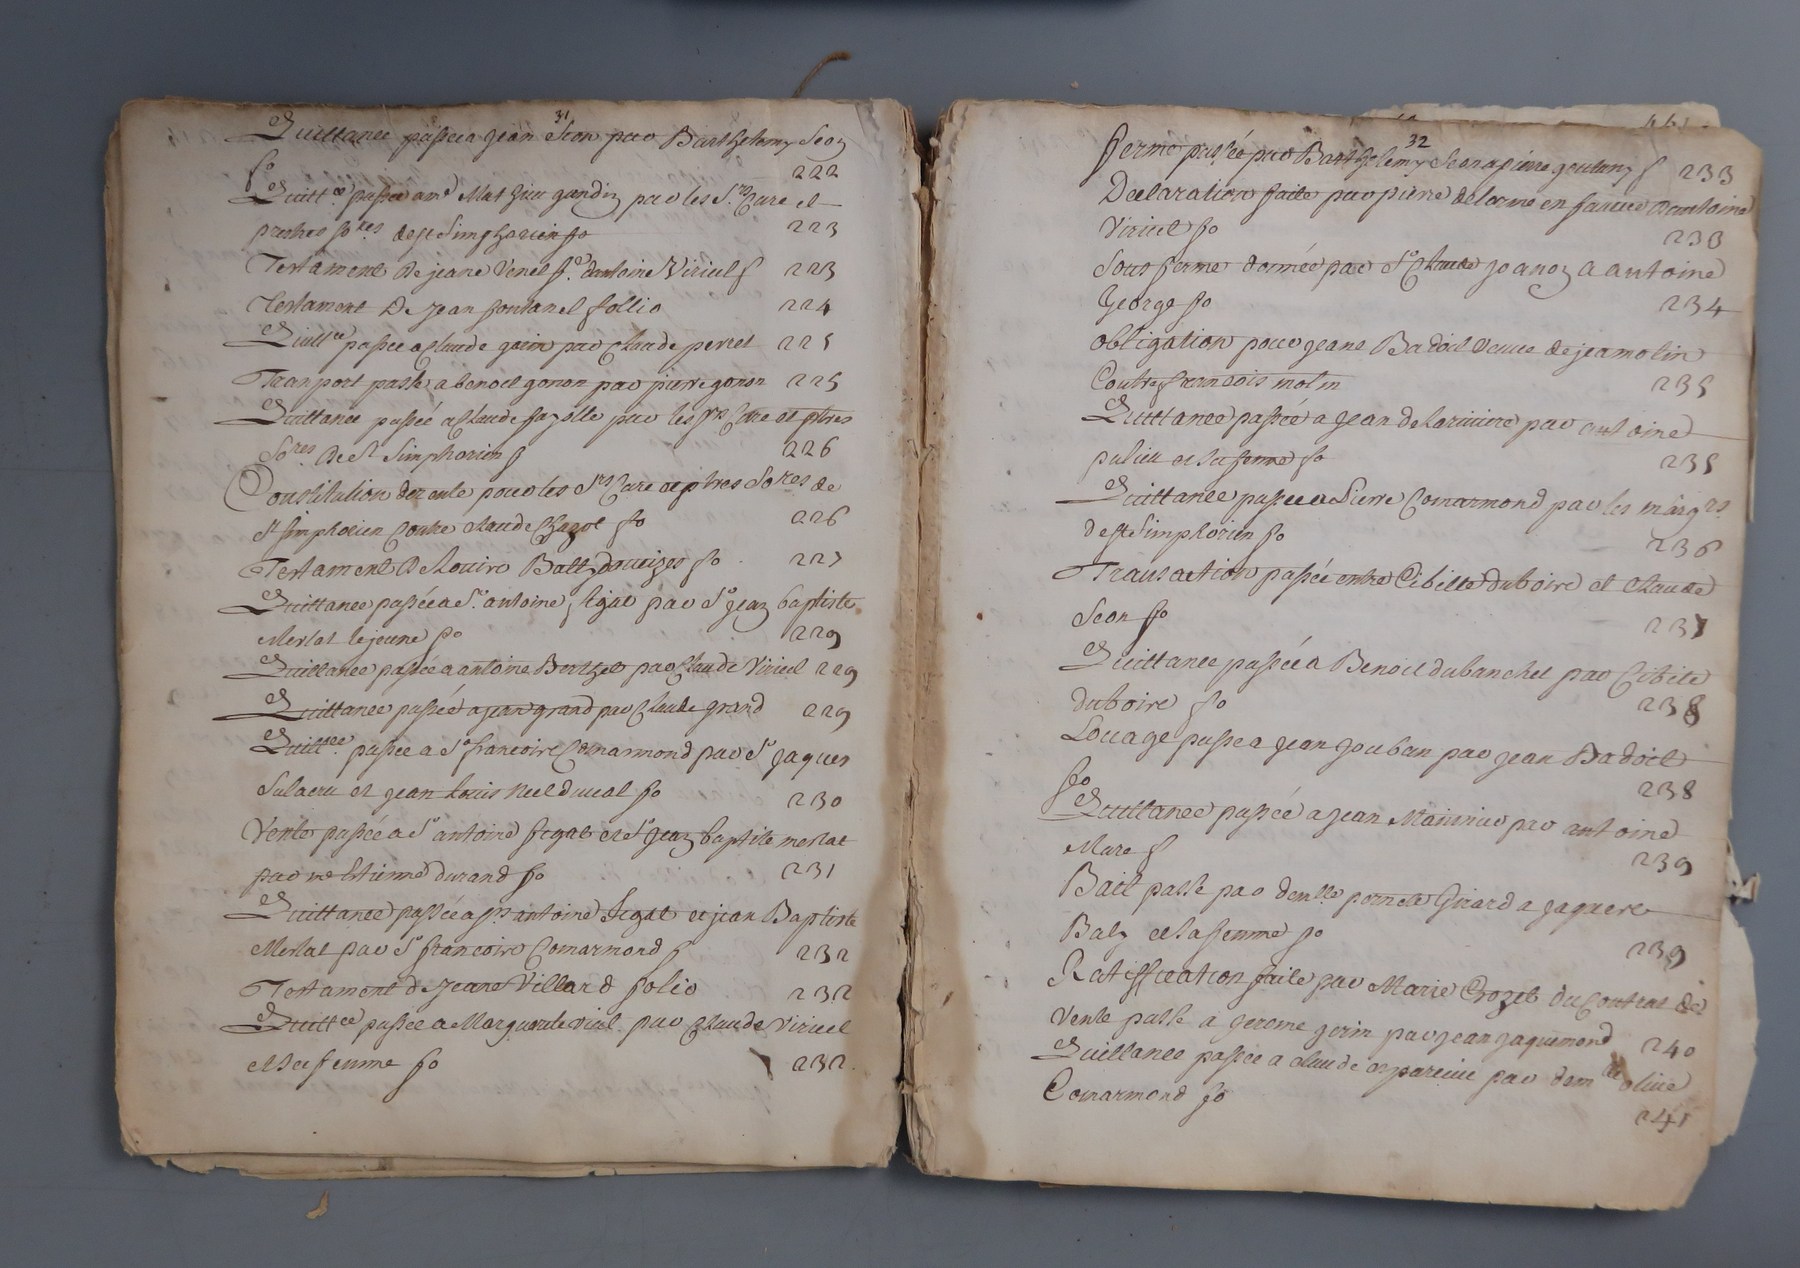 31
Quittance passée a Jean Seon par Barthelemy Seon
fo 222
Quittce passée a me Mathieu gandin par les Srs Cure et
prestres so.res de st Simphorien fo 223
Testament De jeane Venet f.e dantoine Viricel f 223
Testament De Jean fontanel follio 224
Quittce passée a Claude goin par Claude perret 225
Tranport passé a benoit gonon par pierre gonon 225
Quittance passée a Claude fayolle par les srs Cure et ptres
So.res De St Simphorien f 226
Constitution de rente pour les Srs Cure et ptres So.res de
St Simphorien Contre Claude Chazot fo 226
Testament De Louise fo 227
Quittance passée a Sr antoine segat par Sr Jean baptiste
Merlat le jeune fo 229
Quittance passée a antoine par Claude Viricel 229
Quittance passée a jean grand par Claude grand 229
Quittce passée a Sr francoise Comarmond par Sr Jaques
et Jean Louis fo 230
Vente passée a Sr antoine segat et Sr Jean baptiste merlat
par me Estienne durand fo 231
Quittance passée a srs antoine Segat et jean Baptiste
Merlat par Sr francoise Comarmond f 232
Testament de Jeane Villard folio 232
Quittce passée a Marguerite vial par Claude Viricel
et sa femme fo 232
32
ferme passée par Barthelemy Seon a pierre f 233
Declaration faite par pierre delorme en faveur dantoine
Viricel fo 233
Sous ferme donnée par Sr Claude Joanon a antoine
George fo 234
obligation pour jeane Badoil veuve de jea molin
Contre francois molin 235
Quittance passée a Jean de Lariviere par antoine
pulieu et sa femme fo 235
Quittance passée a Pierre Comarmond par les marg.rs
de st Simphorien fo 236
Transaction passée entre Cibille duboise et Claude
Seon fo 237
Quittance passée a Benoit dubanchet par Cibile
duboise fo 238
Louage passé a Jean Jouban par Jean Badoil
fo 238
Quittance passée a Jean par antoine
Mure f 239
Bail passé par demlle Girard a Jaques
Baly et sa femme fo 239
Ratiffication faite par Marie Crozet du Contrat de
Vente passé a Jerome gerin par Jean Jaquemond 240
Quittance passée a Claude par demlle olive
Comarmond fo 241